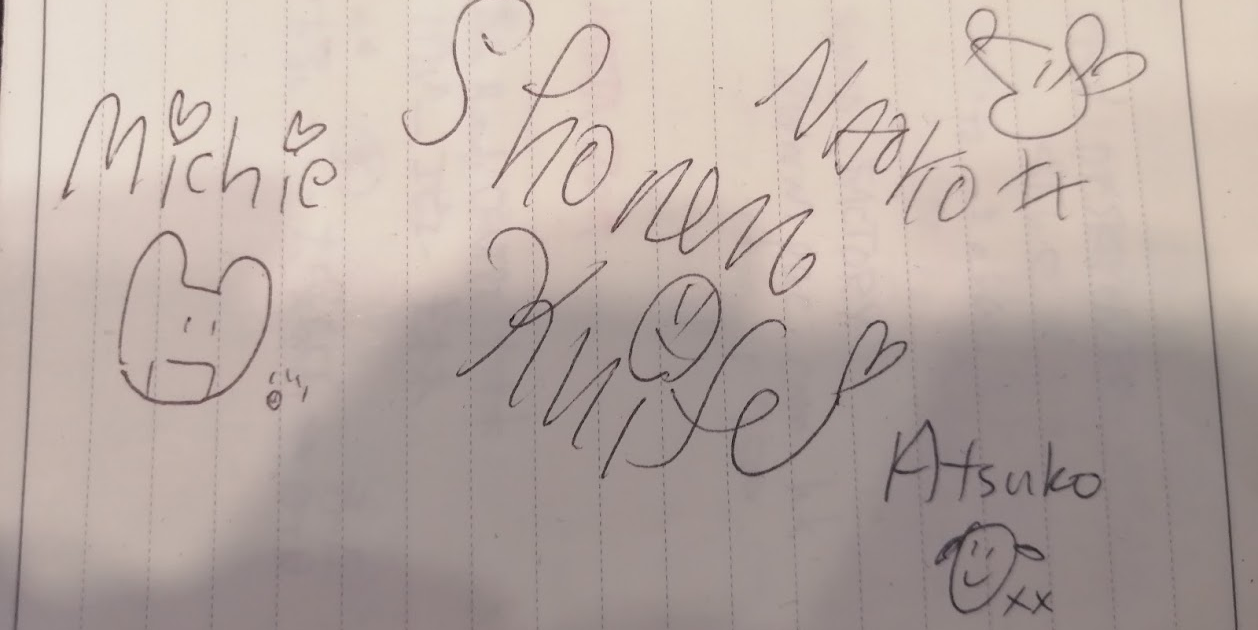 Michie
Shonen
Knife
Naoko xx
Atsuko
xx